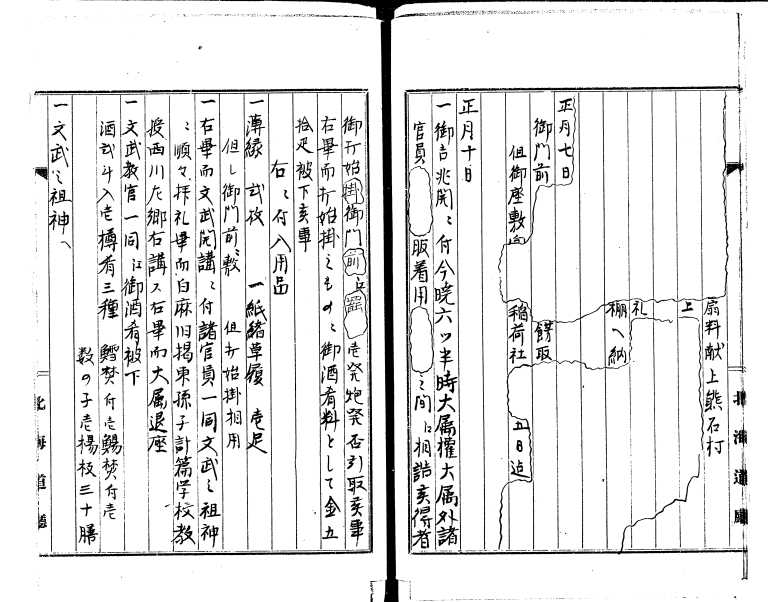 扇料献上熊石村
上
礼
棚へ納
正月七日
御門前 餝取
但御座敷 稲荷社 五日迠
正月十日
一御吉兆開ニ付今暁六ツ半時大属権大属外諸
官員 服着用 之間江相詰亥得者
御打始掛御門前兵器 壱発炮発否引取亥事
右畢而打始掛之もの江御酒肴料として金五
拾疋被下亥事
右ニ付入用品
一薄縁 弐枚 一紙緒草履 壱足
但し御門前敷 但打始掛相用
一右畢而文武開講ニ付諸官員一同文武之祖神
江順々拝礼畢而白麻旧揚東孫子計篇学校教
授西川左郷右講ス右畢而大属退座
一文武教官一同江御酒肴被下
酒弐斗入壱樽肴三種 鱈焚付壱鰑焚付壱
数の子壱楊枝三十膳
一文武之祖神へ
北海道廳
北海道廳